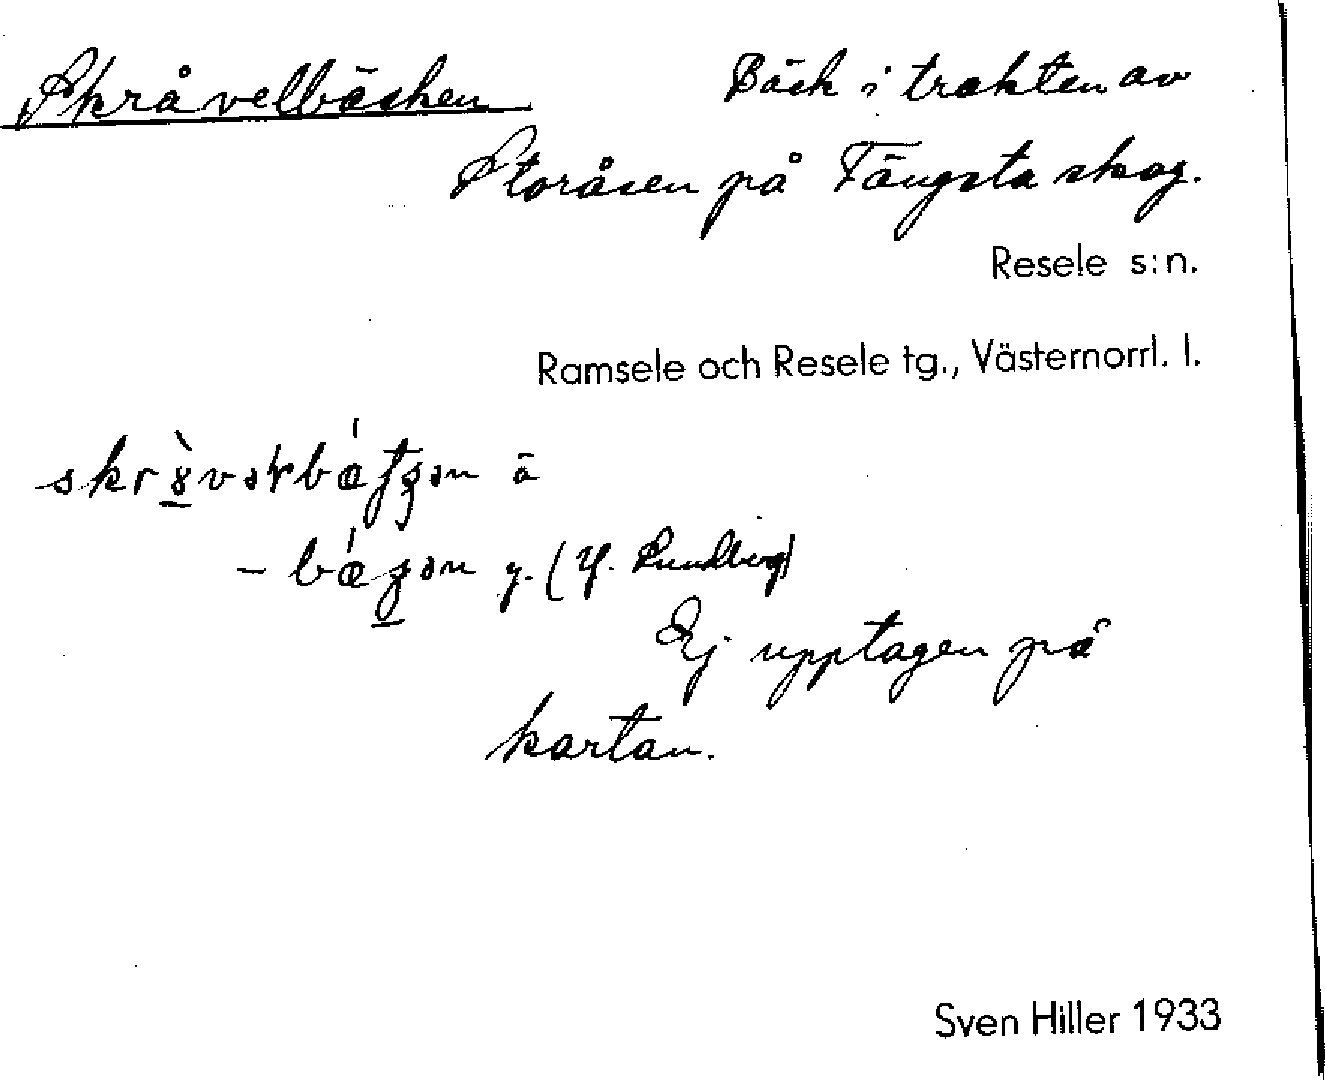 Skråvelbäcken Bäck i trakten av
Storåsen på Tängsta skog.
Resele s:n.
Ramsele och Resele tg., Västernorrl. l.
ä
y. ( Lundberg)
Ej upptagen på
kartan.
Sven Hiller 1933